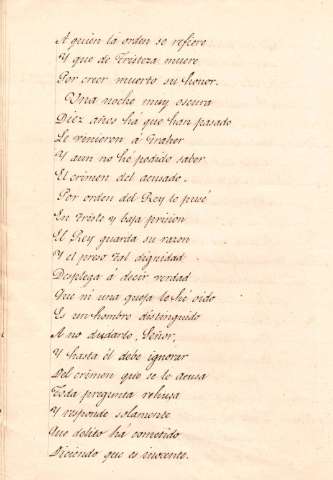 A quien la orden se refiere
Y que de tristeza muere
Por creer muerto su honor.
Una noche muy oscura
Diez años há que han pasado
Le vinieron á traher
Y aun no hé podido saber
El crimen del acusado.
Por orden del Rey le pusé
En triste y baja pricion
El Rey guarda su razon
Y el preso tal dignidad
Desplega á decir verdad
Que ni una queja le hé oido
Es un hombre distinguido
A no dudarlo, Señor,
Y hasta él debe ignorar
Del crimen que se le acusa
Toda pregunta rehusa
Y responde solamente
Que delito há cometido
Diciendo que es inocente.